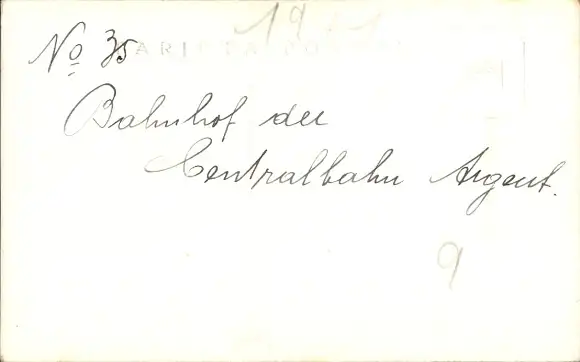 No 35
Bahnhof der
Centralbahn Argent.
9